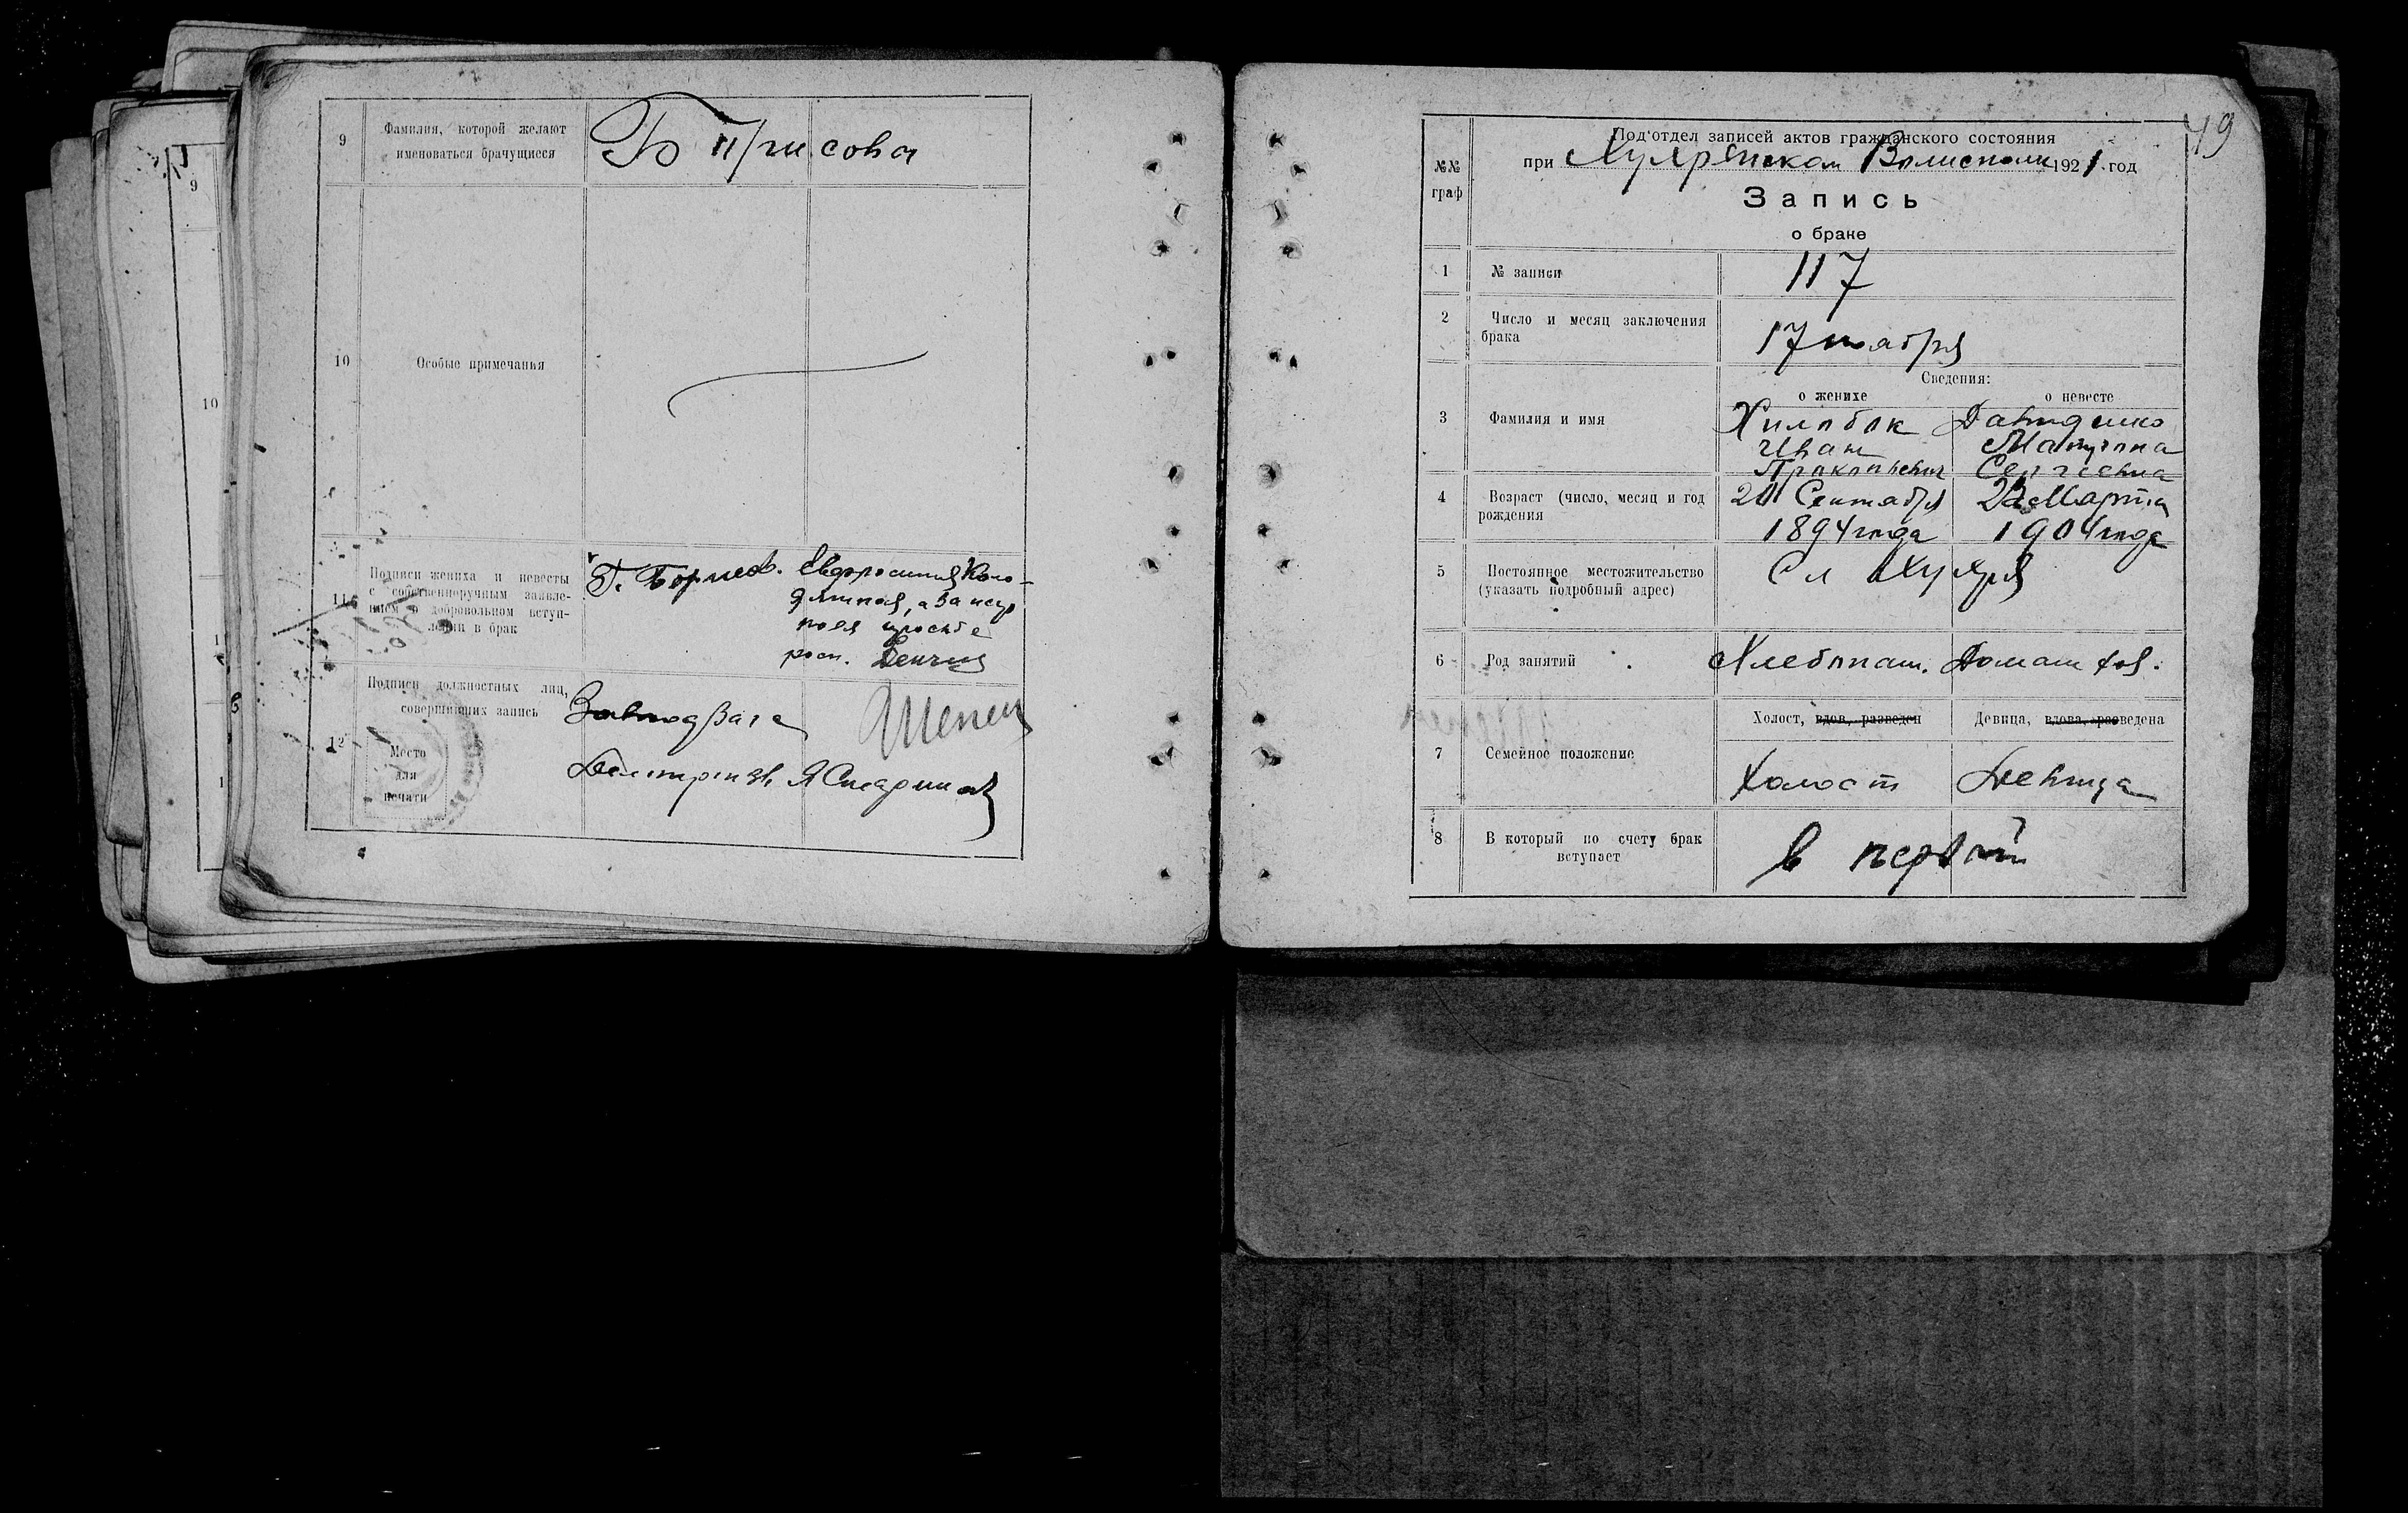 9
Фамилия, которой желают
именоваться брачущиеся
Борисова
10
Особые примечания
11
Подписи жениха и невесты
с собственноручным заявле-
нием о добровольном вступ-
лении в брак
Г. Борисов.
Евфросиния Коло-
а за негр
просьбе
росп.
12
Подписи должностных лиц,
совершивших запись
Место
для
печати
Завподзага
Делопроизв
9
10
49
№№
граф
Под'отдел записей актов гражданского состояния
при Волисполк 1921 год
Запись
о браке
1
№ записи
117
2
Число и месяц заключения
брака
17 ноября
Сведения:
о женихе
о невесте
3
Фамилия и имя
Хилобок
Иван
Прокопьевич
Давиденко
Матрона
Сергеевна
4
Возраст (число, месяц и год
рождения
20 Сентября
1894 года
Марта
1904 года
5
Постоянное местожительство
(указать подробный адрес)
Сл
6
Род занятий
Хлебопаш.
Домаш хоз.
7
Семейное положение
Холост, вдов, разведен
Девица, вдова, разведена
Холост
Девица
8
В который по счету брак
вступает
в первый